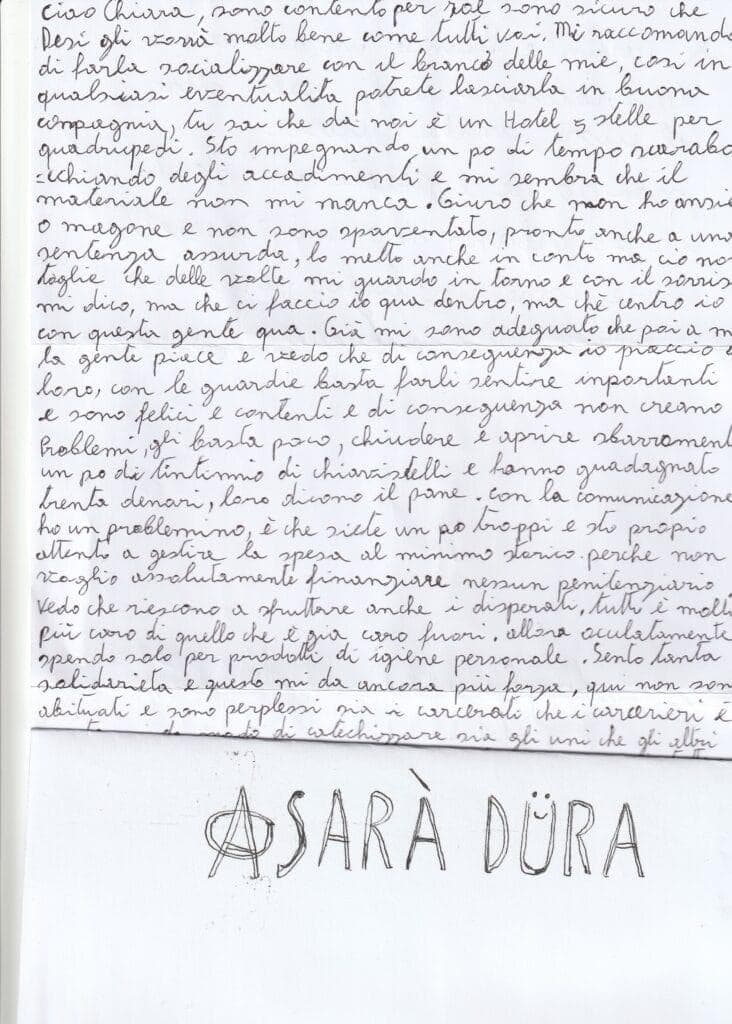 Ciao Chiara, sono contento per Zal sono sicuro che
Desi gli vorrà molto bene come tutti voi. Mi raccomando
di farla socializzare con il branco delle mie, cosi in
qualsiasi eventualità potrete lasciarla in buona
compagnia, tu sai che da noi è un Hotel 5 stelle per
quadrupedi. Sto impegnando un po di tempo scarabo
-cchiando degli accadimenti e mi sembra che il
materiale non mi manca. Giuro che non ho ansie
o magone e non sono spaventato, pronto anche a una
sentenza assurda, lo metto anche in conto ma ciò no
toglie che delle volte mi guardo in torno e con il sorris
mi dico, ma che ci faccio io qua dentro, ma chè centro io
con questa gente qua. Già mi sono adeguato che poi a m
la gente piace e vedo che di conseguenza io piaccio a
loro, con le guardie basta farli sentire inportanti
e sono felici e contenti e di conseguenza non creano
problemi, gli basta poco, chiudere e aprire sbarrament
un po di tintinnio di chiavistelli e hanno guadagnato
trenta denari, loro dicono il pane. con la comunicazione
ho un problemino, è che siete un po troppi e sto propio
attento a gestire la spesa al minimo storico. perche non
voglio assolutamente finanziare nessun penitenziario.
Vedo che riescono a sfruttare anche i disperati, tutti è molt
più caro di quello che è gia caro fuori. allora oculatamente
spendo solo per prodotti di igiene personale. Sento tanta
solidarietà e questo mi da ancora più forza, qui non son
abituati e sono perplessi sia i carcerati che i carcerieri è
modo di catechizzare sia gli uni che gli altri
A SARÀ DÜRA